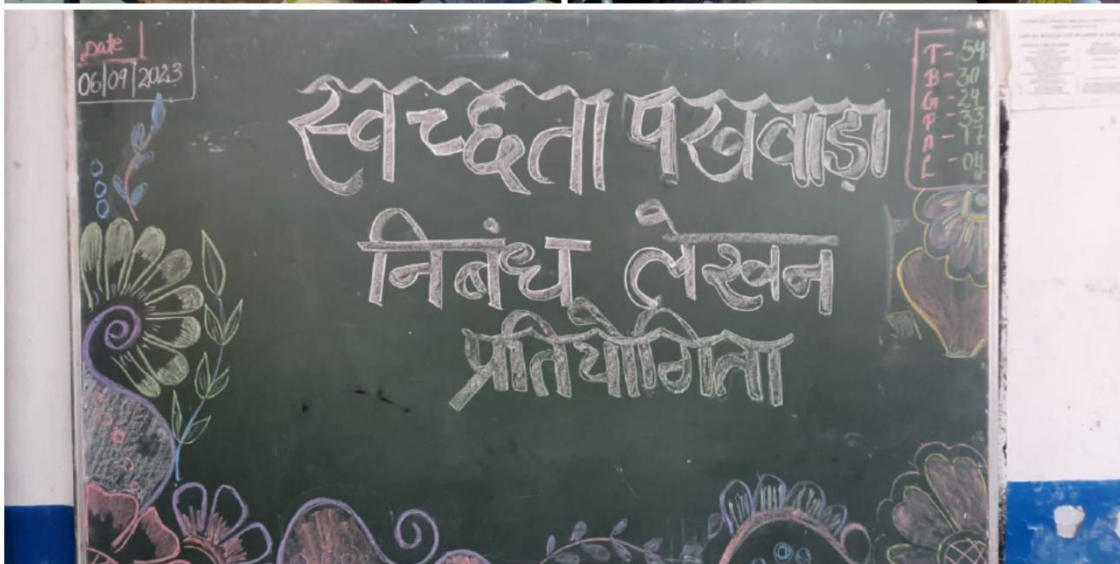 Date
06/09/2023
स्वच्छता पखवाड़ा
निबंध लेखन
प्रतियोगिता
T - 54
B - 30
G - 24
P - 33
A - 17
L - 04